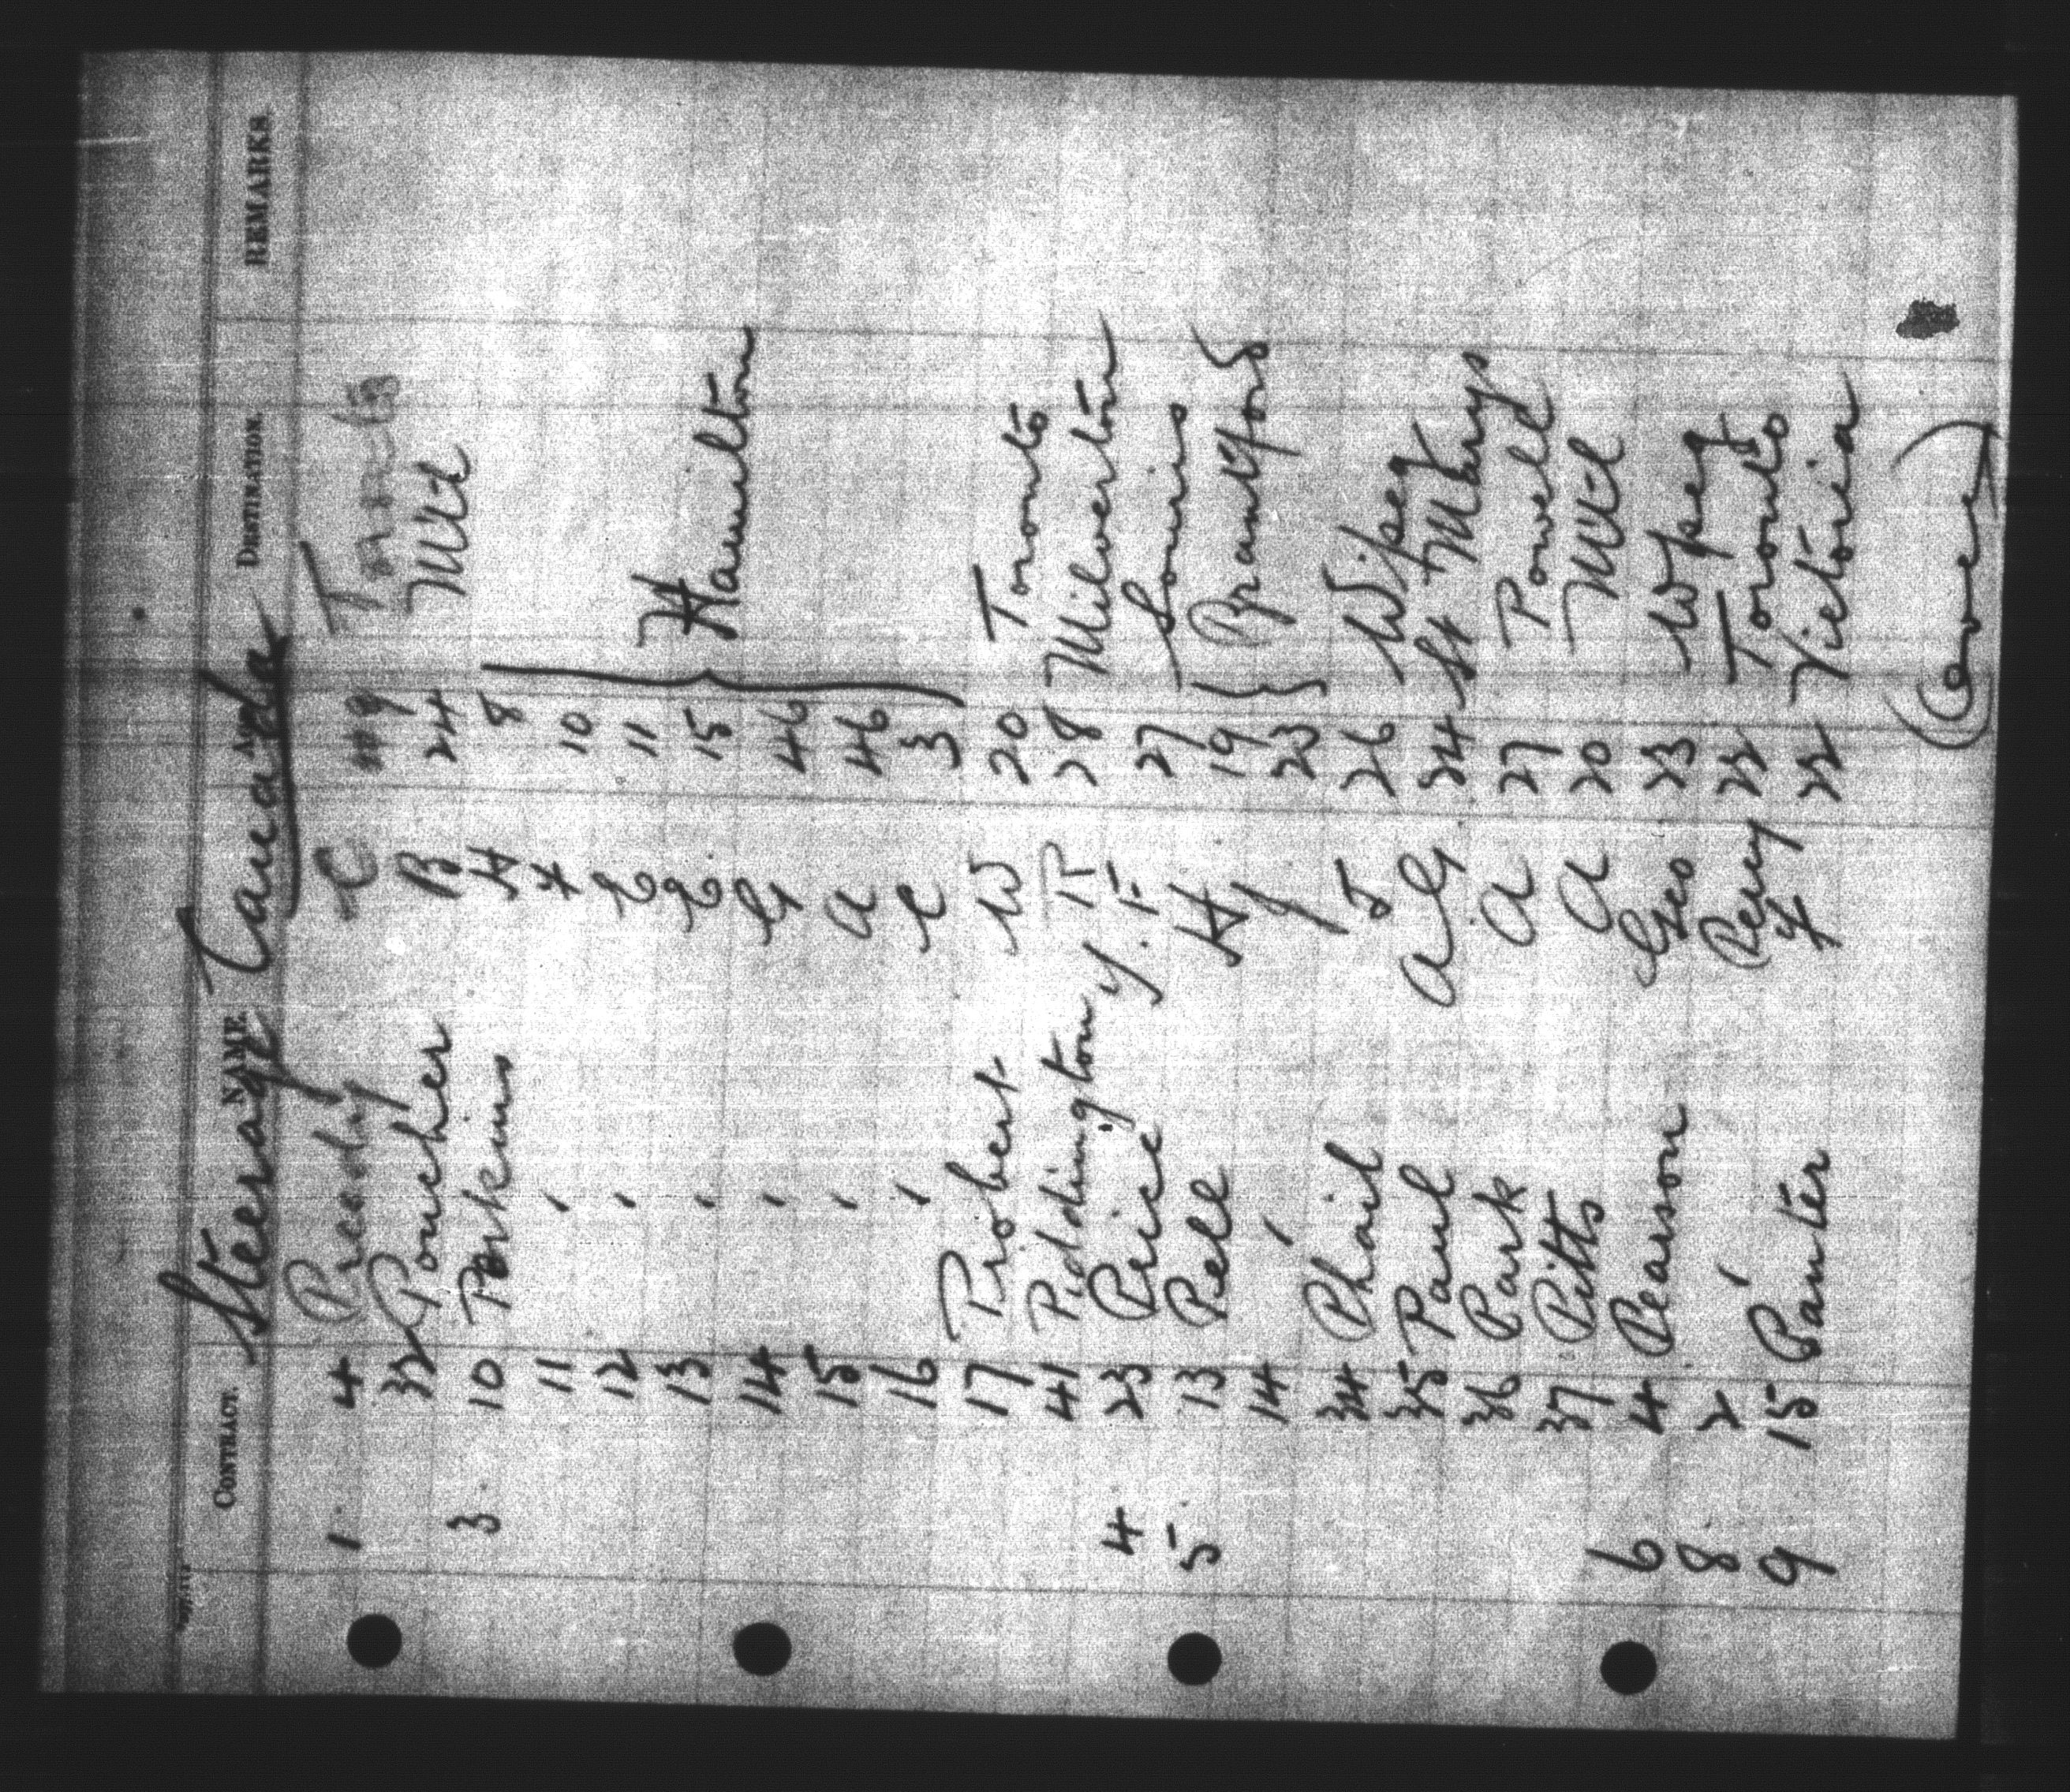 Steerage Canada
CONTRACT. NAME. AGE. DESTINATION. REMARKS.
1. 4 Preedy C 49 Toronto
32 Poucher B 24 Mtl
3. 10 Perkins H 8
11 ' H 10
12 ' E 11
13 ' E 15 Hamilton
14 ' G 46
15 ' A 46
16 ' C 3
17 Probert W 20 Toronto
41 Piddington R 28 Milverton
4 23 Price Y. F. 27 Souris
5. 13 Pell H 19 Brantford
14 ' J 23
34 Phail J 26 Wipeg
35 Paul A G 34 St Marys
36 Park A 27 Powell
37 Pitts A 20 Mtl
6 4 Pearson Geo 23 Wpeg
8. 2 ' Percy 22 Toronto
9 15 Panter F 22 Victoria
(over)